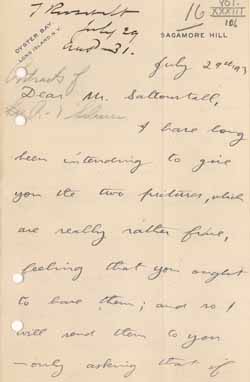 T Roosevelt
July 29
and 31.
16
VOL.
XXXIII
106
OYSTER BAY
LONG ISLAND, N.Y.
SAGAMORE HILL
July 29th 1913
Portraits of
Dear Mr. Saltonstall,
I have long
been intending to give
you the two pictures, which
are really rather fine,
feeling that you ought
to have them; and so I
will send them to you
—only asking that if